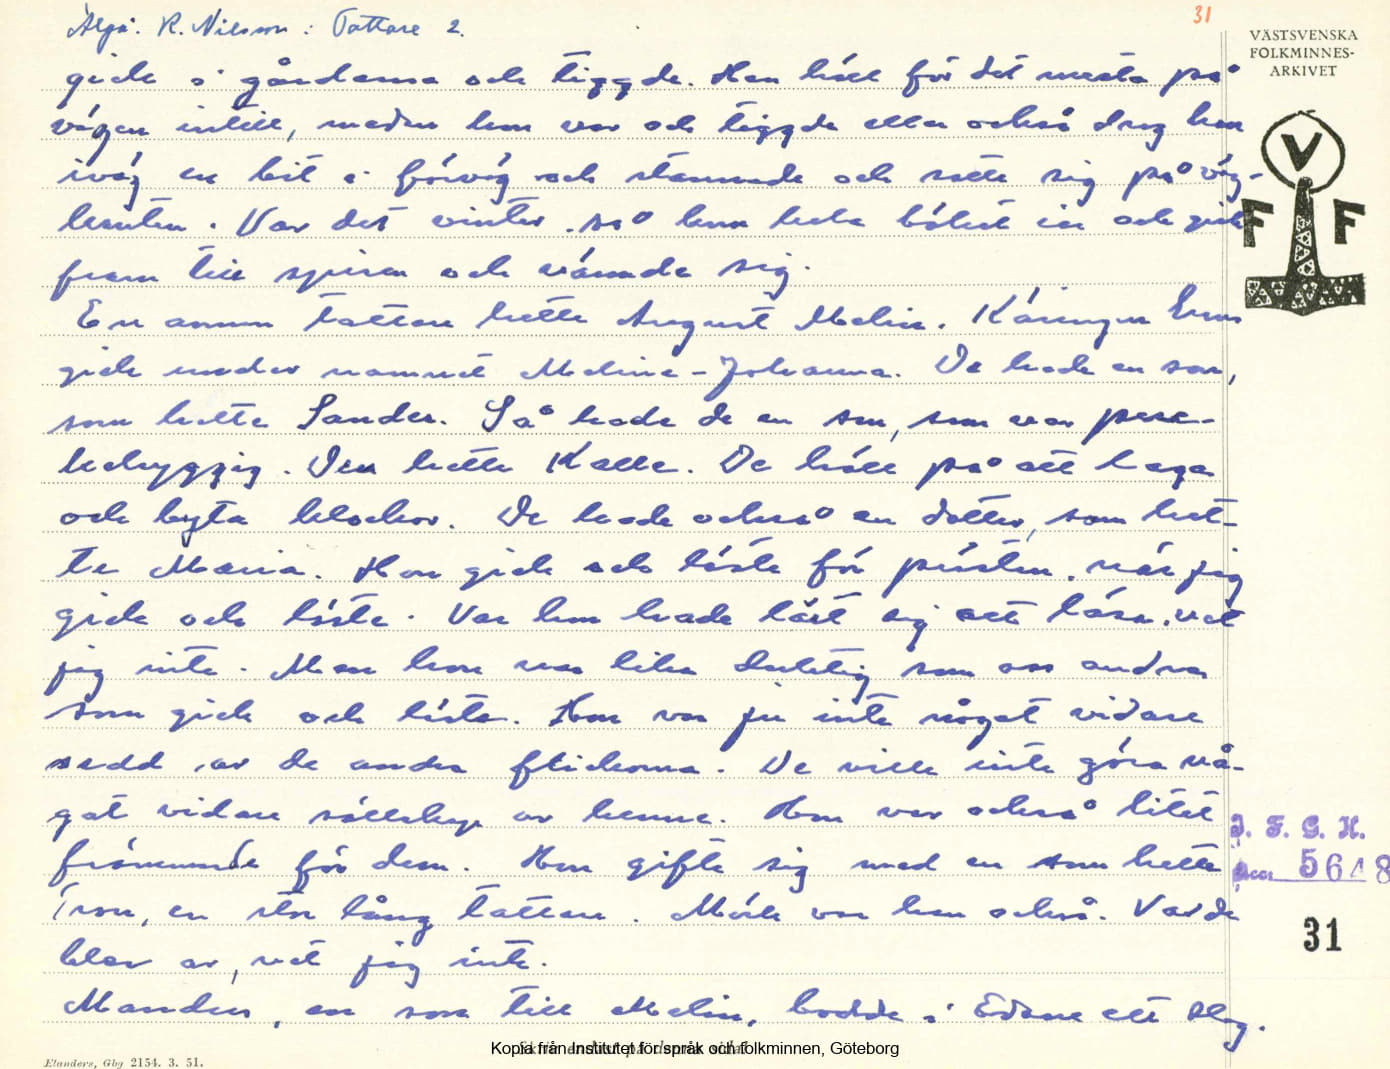 Älgå. R. Nilsson: Tattare 2.
31
VÄSTSVENSKA
FOLKMINNES-
ARKIVET
V
F F
gick i gårdarna och tiggde. Han höll för det mesta på
vägen intill, medan hon var och tiggde eller också drog han
iväg en bit i förväg och stannade och satte sig på väg-
kanten. Var det vinter, så kom hela bölet in och gick
fram till spisen och värmde sig.
En annan tattare hette August Melin. Käringen
gick under namnet Melina-Johanna. De hade en son,
som hette Sander. Så hade de en son, som var
Den hette Kalle. De höll på att laga
och byta klockor. De hade också en dotter, som het-
te Maria. Hon gick och läste för prästen, när jag
gick och läste. Var hon hade lärt sig att läsa, vet
jag inte. Men hon var lika duktig som oss andra
som gick och läste. Hon var ju inte något vidare
sedd av de andra flickorna. De ville inte göra nå-
got vidare sällskap av henne. Hon var också litet
främmande för dem. Hon gifte sig med en som hette
en stor lång tattare. Mörk var han också. Var de
blev av, vet jag inte.
en son till Melin, bodde i Edane ett slag.
I. F. G. H.
5648
31
Kopia från Institutet för språk och folkminnen, Göteborg
Elanders, Gbg 2154. 3. 51.